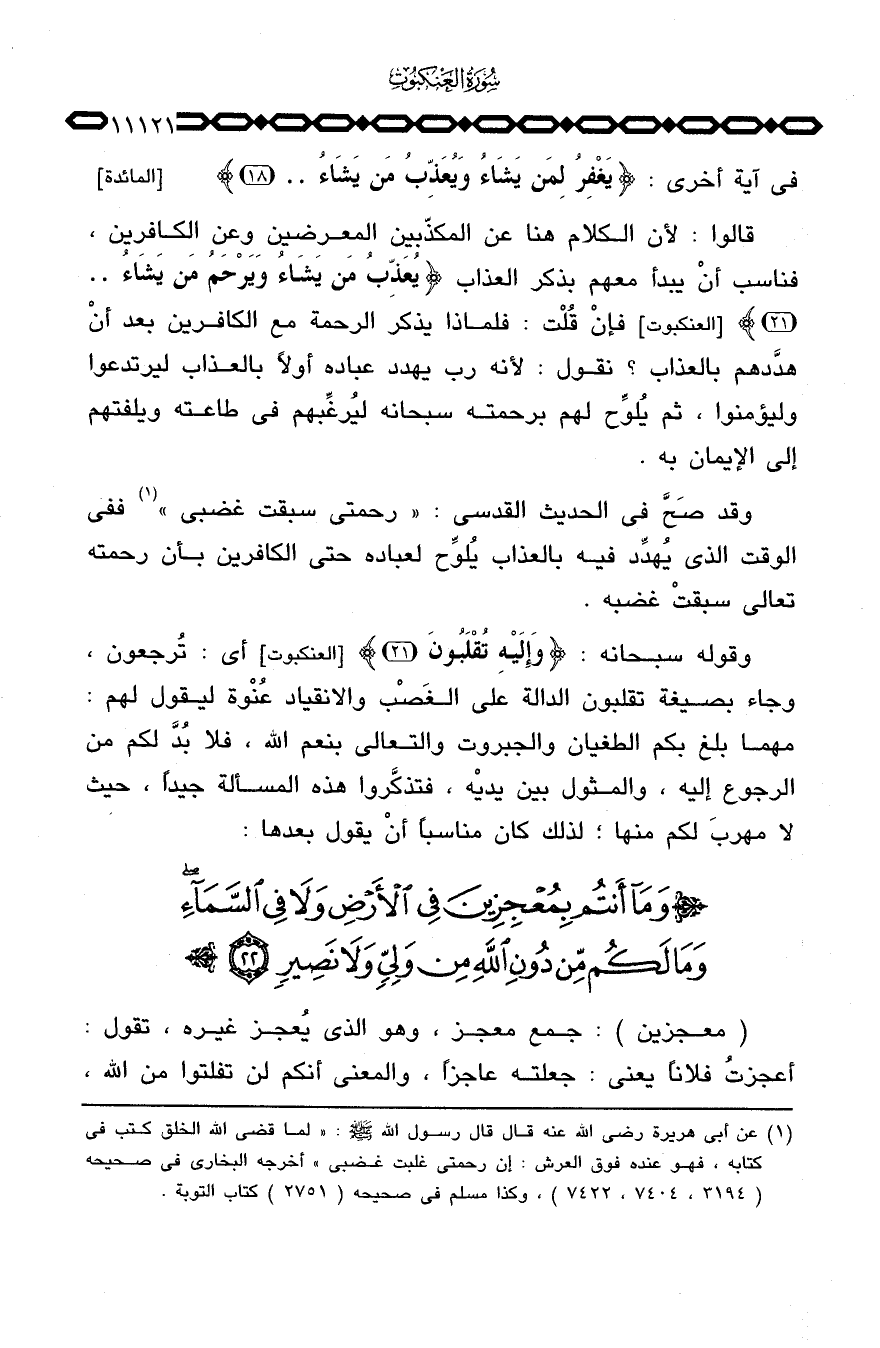 سُورَةُ العَنكَبُوتِ
١١١٢١
فى آية أخرى : ﴿ يَغْفِرُ لِمَن يَشَاءُ وَيُعَذِّبُ مَن يَشَاءُ .. (١٨) ﴾ [المائدة]
قالوا : لأن الكلام هنا عن المكذّبين المعرضين وعن الكافرين ،
فناسب أنْ يبدأ معهم بذكر العذاب ﴿ يُعَذِّبُ مَن يَشَاءُ وَيَرْحَمُ مَن يَشَاءُ ..
(٢١) ﴾ [العنكبوت] فإنْ قُلْت : فلماذا يذكر الرحمة مع الكافرين بعد أنْ
هدَّدهم بالعذاب ؟ نقول : لأنه رب يهدد عباده أولاً بالعذاب ليرتدعوا
وليؤمنوا ، ثم يُلوِّح لهم برحمته سبحانه ليُرغِّبهم فى طاعته ويلفتهم
إلى الإيمان به .
وقد صَحَّ فى الحديث القدسى : « رحمتى سبقت غضبى »(١) ففى
الوقت الذى يُهدِّد فيه بالعذاب يُلوِّح لعباده حتى الكافرين بأن رحمته
تعالى سبقتْ غضبه .
وقوله سبحانه : ﴿ وَإِلَيْهِ تُقْلَبُونَ (٢١) ﴾ [العنكبوت] أى : تُرجعون ،
وجاء بصيغة تقلبون الدالة على الغَصْب والانقياد عُنْوة ليقول لهم :
مهما بلغ بكم الطغيان والجبروت والتعالى بنعم الله ، فلا بُدَّ لكم من
الرجوع إليه ، والمثول بين يديْه ، فتذكَّروا هذه المسألة جيداً ، حيث
لا مهربَ لكم منها ؛ لذلك كان مناسباً أنْ يقول بعدها :
﴿ وَمَآ أَنتُم بِمُعْجِزِينَ فِى ٱلْأَرْضِ وَلَا فِى ٱلسَّمَآءِ ۖ
وَمَا لَكُم مِّن دُونِ ٱللَّهِ مِن وَلِىٍّ وَلَا نَصِيرٍ ٢٢ ﴾
( معجزين ) : جمع معجز ، وهو الذى يُعجز غيره ، تقول :
أعجزتُ فلاناً يعنى : جعلته عاجزاً ، والمعنى أنكم لن تفلتوا من الله ،
(١) عن أبى هريرة رضى الله عنه قال قال رسول الله ﷺ : « لما قضى الله الخلق كتب فى
كتابه ، فهو عنده فوق العرش : إن رحمتى غلبت غضبى » أخرجه البخارى فى صحيحه
( ٣١٩٤ ، ٧٤٠٤ ، ٧٤٢٢ ) ، وكذا مسلم فى صحيحه ( ٢٧٥١ ) كتاب التوبة .